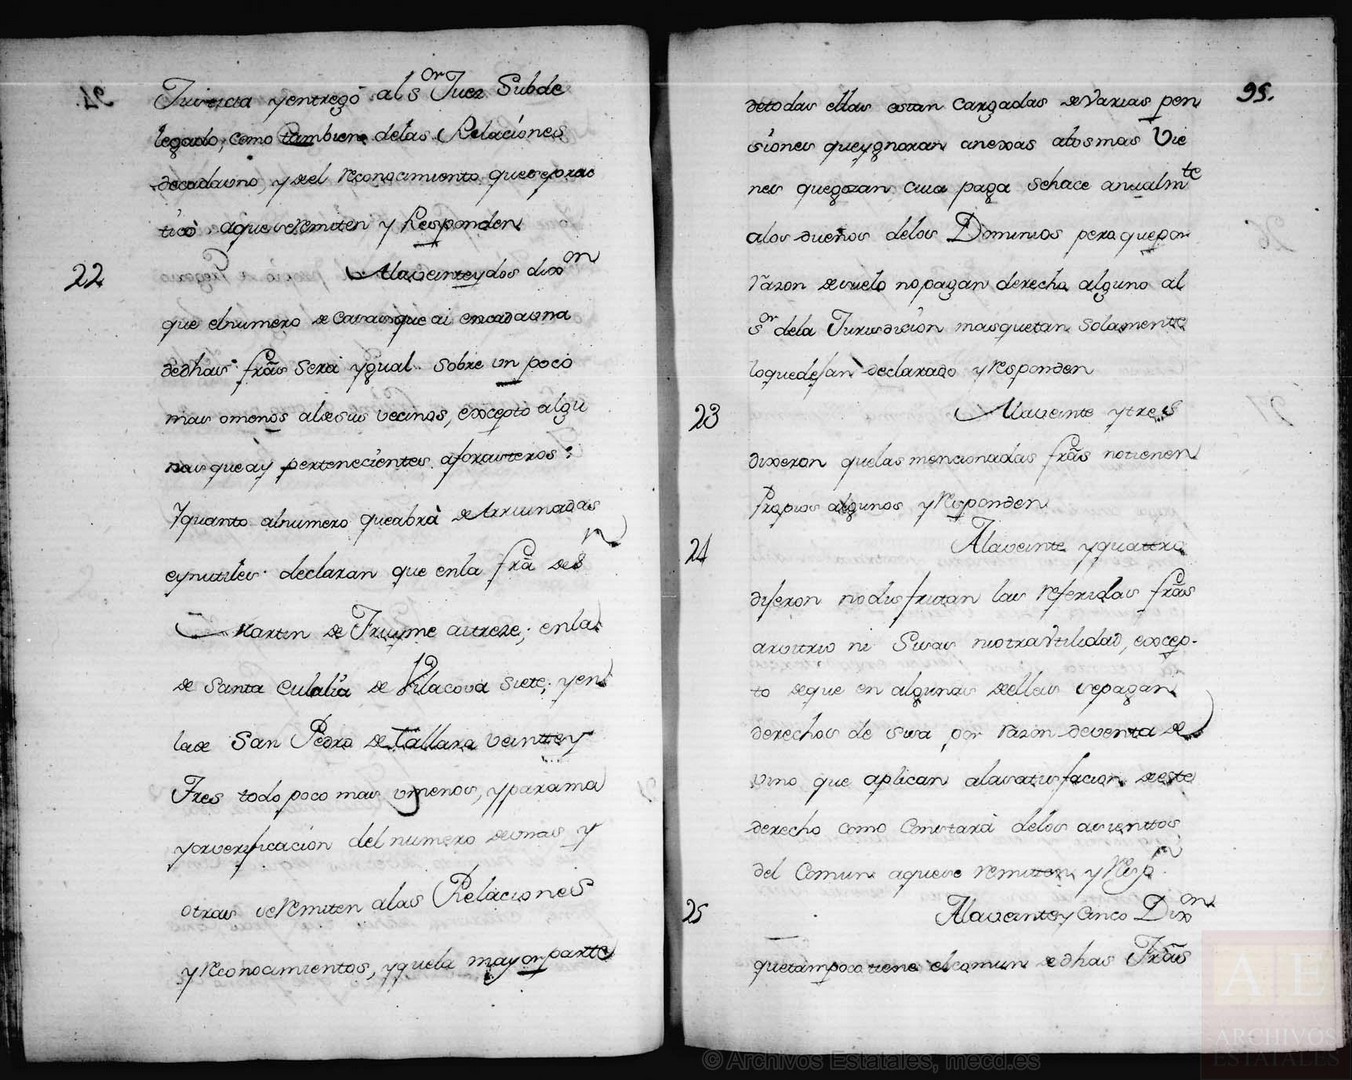 Jurisdicia yentregó al Sor Juez Subde
legado, como tambien delas Relaciones
decadauno, y del reconocimiento queseprac
ticò aque seremiten y Responden
22 Alaveinteydos dixon
que elnumero de Casas que ai encadauna
dedhas fras Serà ygual sobre un poco
mas omenos alosus vecinos, excepto algu
nas que ay pertenecientes aforasteros:
Yquanto alnumero queabrà de Arruinadas
eynutiles declaran que enla frã de Sn
Martin de Fruyme aitreze; enla
de Santa eulalia de Vilacova Siete; yen
lade San Pedro de Tallara veintey
Tres todo poco mas omenos, yparama
yorverificacion del numero deunas y
otras seRemiten alas Relaciones
yReconocimientos, yquela mayorparte
95.
detodas ellas estan Cargadas de Varias pen
siones queygnoran anexas alosmas Vie
nes quegozan cuia paga Sehace anualmte
alos dueños delos Dominios pero quepor
razon desuelo nopagan derecho alguno al
sor dela Jurisdicion masquetan Solamente
loquedejan declarado yresponden
23 Alaveinte ytres
dixeron quelas mencionadas frãs notienen
Propios algunos yResponden
24 Alaveinte yquattro
dijeron nodisfrutan las referidas frãs
arvitrio ni Sisas niotra Vtilidad, excep-
to deque en algunas dellas sepagan
derechos de sisa por razon deventa de
vino que aplican alasatisfacion deeste
derecho como Constarà delos asienttos
del Comun aquese remiten, yResp.n
25 Alaveinteycinco Dixon
quetampocotiene elcomun edhas Frãs
© Archivos Estatales, mecd.es
AE
ARCHIVOS
ESTATALES